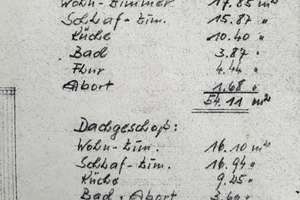 Wohn-Zimmer 17.85 m²
Schlaf-Zim. 15.87 "
Küche 10.40 "
Bad 3.87 "
Flur 4.44 "
Abort 1.68 "
54.11 m²
Dachgeschoß:
Wohn-Zim. 16.10 m²
Schlaf-Zim. 16.94 "
Küche 9.45 "
Bad + Abort